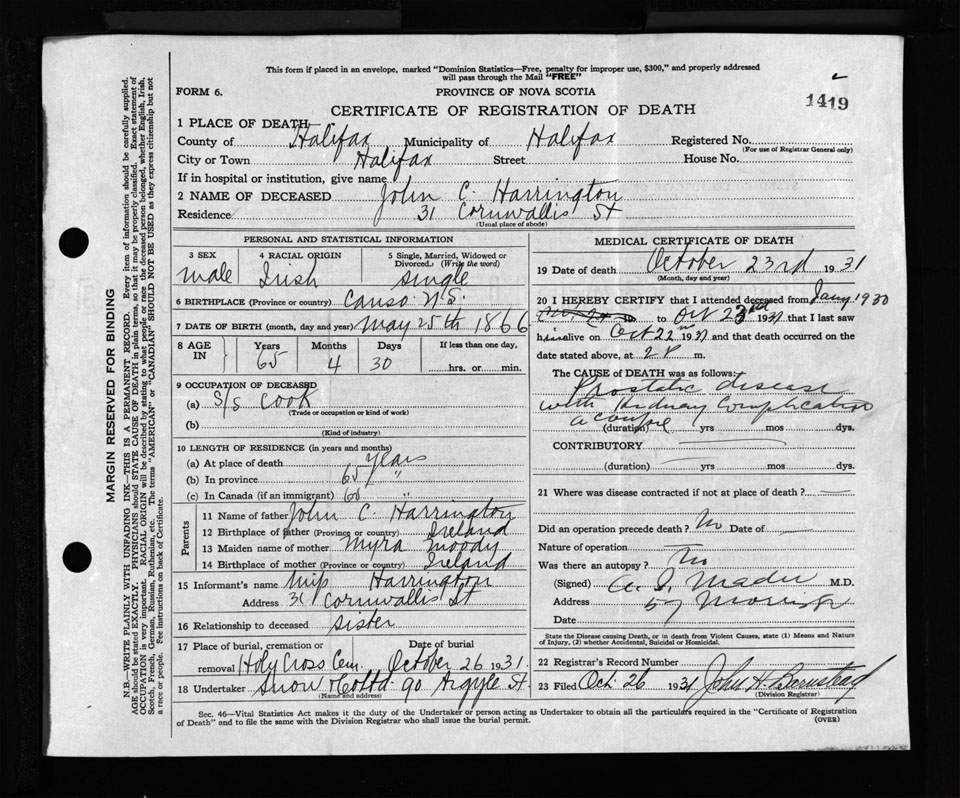 This form if placed in an envelope, marked "Dominion Statistics—Free, penalty for improper use, $300," and properly addressed
will pass through the Mail "FREE"
FORM 6.
PROVINCE OF NOVA SCOTIA
1419
CERTIFICATE OF REGISTRATION OF DEATH
1 PLACE OF DEATH—
County of Halifax Municipality of Halifax Registered No.
(For use of Registrar General only)
City or Town Halifax Street House No.
If in hospital or institution, give name
2 NAME OF DECEASED John C. Harrington
Residence 31 Cornwallis St
(Usual place of abode)
PERSONAL AND STATISTICAL INFORMATION
3 SEX 4 RACIAL ORIGIN 5 Single, Married, Widowed or Divorced. (Write the word)
male Irish single
6 BIRTHPLACE (Province or country) Canso N.S.
7 DATE OF BIRTH (month, day and year) May 25th 1866
8 AGE IN Years Months Days If less than one day,
65 4 30 hrs. or min.
9 OCCUPATION OF DECEASED
(a) S/S Cook
(Trade or occupation or kind of work)
(b)
(Kind of industry)
10 LENGTH OF RESIDENCE (in years and months)
(a) At place of death years
(b) In province 65 "
(c) In Canada (if an immigrant) "
Parents
11 Name of father John C. Harrington
12 Birthplace of father (Province or country) Ireland
13 Maiden name of mother Myra Moody
14 Birthplace of mother (Province or country) Ireland
15 Informant's name Miss Harrington
Address 31 Cornwallis St
16 Relationship to deceased sister
17 Place of burial, cremation or removal Holy Cross Cem. Date of burial October 26 1931.
18 Undertaker Snow & Co Ltd. 90 Argyle St.
(Name and address)
MEDICAL CERTIFICATE OF DEATH
19 Date of death October 23rd 1931
(Month, day and year)
20 I HEREBY CERTIFY that I attended deceased from Jany 1930
to Oct 23rd 1931 that I last saw
him alive on Oct 22nd 1931 and that death occurred on the
date stated above, at 2 P. m.
The CAUSE OF DEATH was as follows:
Prostatic disease
with Kidney Complication
(duration) yrs mos dys.
CONTRIBUTORY
(duration) yrs mos dys.
21 Where was disease contracted if not at place of death?
Did an operation precede death? No Date of
Nature of operation
Was there an autopsy? No
(Signed) A. S. Mader M.D.
Address 57 Morris St
Date
State the Disease causing Death, or in death from Violent Causes, state (1) Means and Nature
of Injury, (2) whether Accidental, Suicidal or Homicidal.
22 Registrar's Record Number
23 Filed Oct. 26 1931 John H. Barnstead
(Division Registrar)
Sec. 46—Vital Statistics Act makes it the duty of the Undertaker or person acting as Undertaker to obtain all the particulars required in the "Certificate of Registration
of Death" and to file the same with the Division Registrar who shall issue the burial permit.
(OVER)
MARGIN RESERVED FOR BINDING
N.B.—WRITE PLAINLY WITH UNFADING INK—THIS IS A PERMANENT RECORD. Every item of information should be carefully supplied.
AGE should be stated EXACTLY. PHYSICIANS should STATE CAUSE OF DEATH in plain terms, so that it may be properly classified. Exact statement of
OCCUPATION is very important. RACIAL ORIGIN will be described by stating to what people or race the deceased person belonged, whether English, Irish,
Scotch, French, German, Russian, Ruthenian, etc. The terms "AMERICAN" or "CANADIAN" SHOULD NOT BE USED as they express citizenship but not
a race or people. See instructions on back of Certificate.